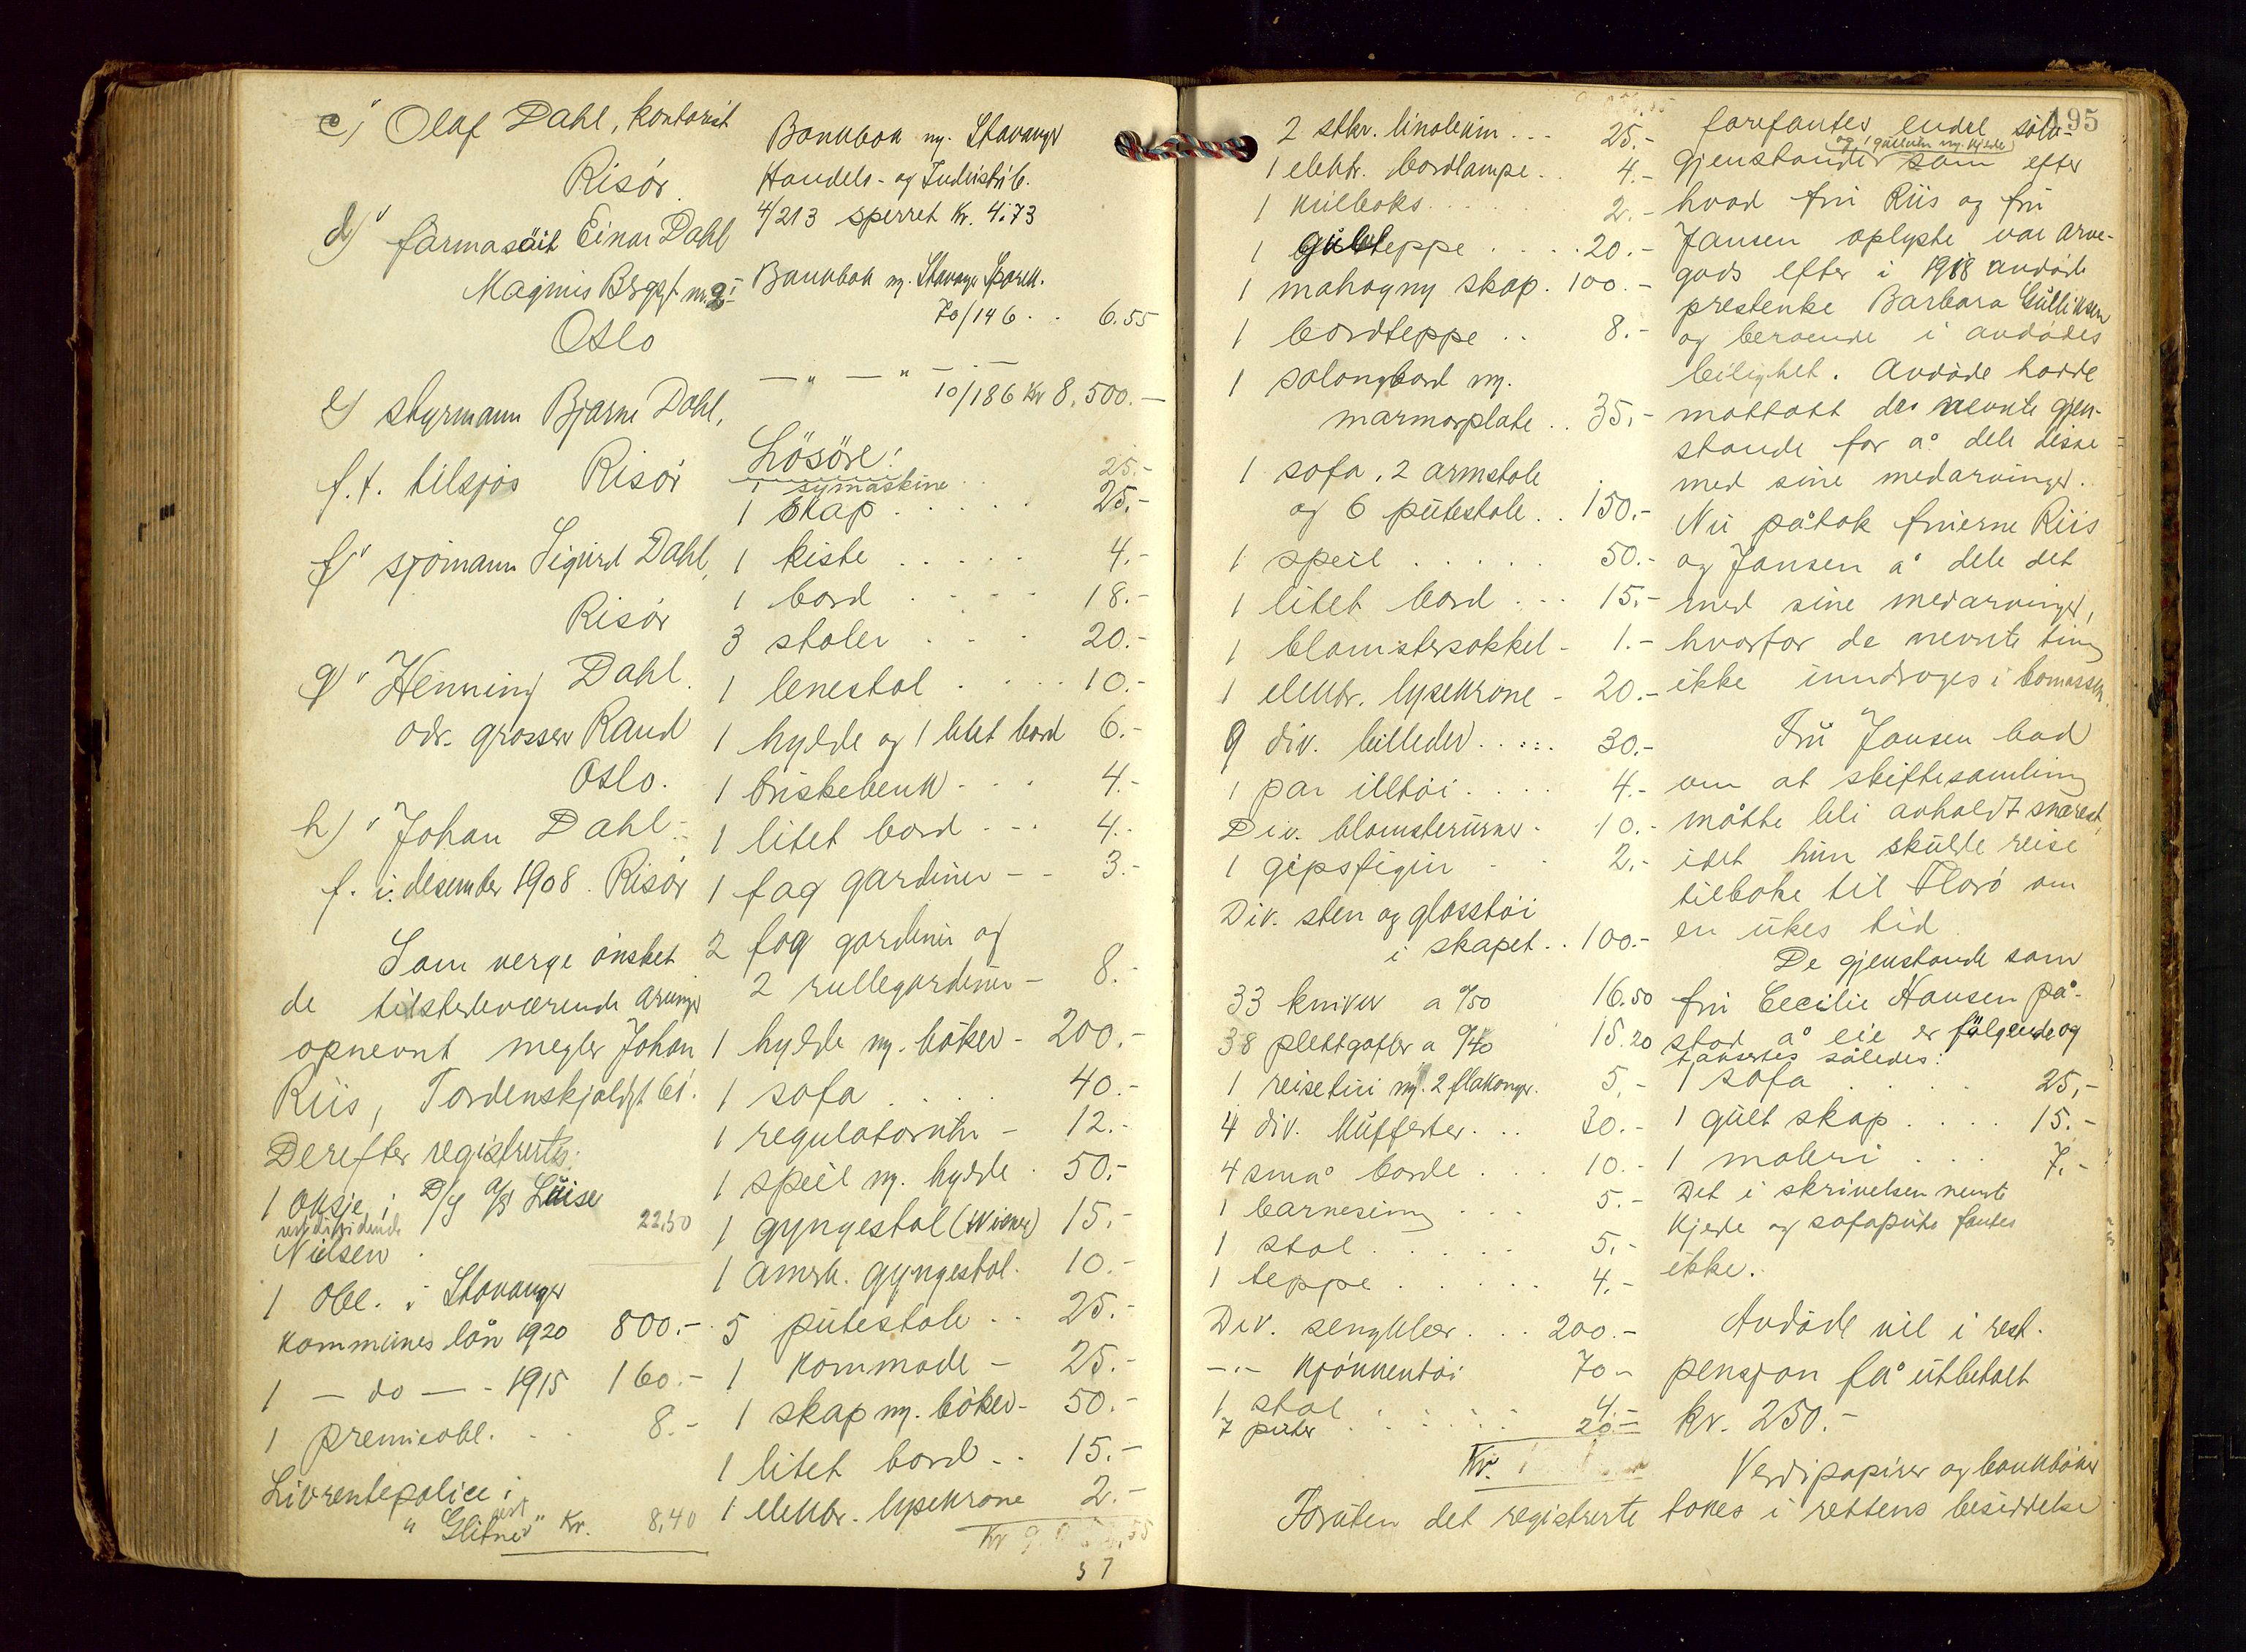 c) Olaf Dahl, kontorist
Risör.
d) farmasöit Einar Dahl
Magnus Bergsgt. nr. 9
Oslo
e) styrmann Bjarne Dahl,
f. t. tilsjös Risör
f) sjömann Sigurd Dahl,
Risör
g) Henning Dahl.
adr. grosser Rand
Oslo.
h) Johan Dahl
f. i desember 1908. Risör
Som verge önsket
de tilstedeværende arvinger
opnevnt megler Johan
Riis, Tordenskjoldsgt 61.
Derefter registrertes:
1 aksje i D/S A/S Luise
rest dividende 22,50
Nielsen
1 obl. i Stavanger
kommunes lån 1920 800.-
1 — do — - 1915 160.-
1 premieobl. . . 8.-
Livrentepolice i
rest
"Glitne" Kr. 8,40
Bankbok m. Stavanger
Handels- og Industrib.
4/213 sperret Kr. 4.73
Bankbok m. Stavanger Sparek.
70/146 . . 6.55
— " — " — 10/186 Kr 8,500.—
Lösöre:
1 symaskine . . 25.-
1 skap . . . . . 25.-
1 kiste . . . . . 4.-
1 bord . . . . 18.-
3 stoler . . . 20.-
1 lenestol . . . . 10.-
1 hylde og 1 litet bord 6.-
1 briskebenk . . . 4.-
1 litet bord . . . 4.-
1 fag gardiner - - 3.-
2 fag gardiner og
2 rullegardiner - 8.-
1 hylde m. böker - 200.-
1 sofa . . . . 40.-
1 regulatoruhr - 12.-
1 speil m. hylde . 50.-
1 gyngestol (Wiener) 15.-
1 amrk. gyngestol. 10.-
5 putestole . . 25.-
1 kommode - 25.-
1 skap m. böker - 50.-
1 litet bord . . 15.-
1 elektr. lysekrone 2.-
195
2 stkr. linoleum . . . 25.-
1 elektr. bordlampe . . 4.-
1 kulboks . . . . . 2.-
1 gulvteppe . . . . 20.-
1 mahogny skap . 100.-
1 bordteppe . . 8.-
1 salongbord m.
marmorplate . . 35.-
1 sofa, 2 armstole
og 6 putestole . . 150.-
1 speil . . . . . 50.-
1 litet bord . . . 15.-
1 blomstersokkel - 1.-
1 elektr. lysekrone - 20.-
9 div. billeder . . . . 30.-
1 par illtöi . . . . 4.-
Div. blomsterurner - 10.-
1 gipsfigur - . 2.-
Div. sten og glasstöi
i skapet . . 100.-
33 kniver a 0/50 16.50
38 plettgafler a 0/40 15.20
1 reisetui m. 2 flakonger. 5.-
4 div. kufferter . . . 30.-
4 små borde . . . 10.-
1 barneseng . . . 5.-
1 stol . . . . . 5.-
1 teppe . . . . . 4.-
Div. sengklær . . . 200.-
-"- kjökkentöi 70.-
1 stol . . . . . 4.-
7 puter . . . . . 20.-
Kr.
forefantes endel sölv-
og 1 gullur m. kjede
gjenstander som efter
hvad fru Riis og fru
Jansen oplyste var arve-
gods efter i 1918 avdöde
prestenke Barbara Gulliksen
og beroende i avdödes
leilighet. Avdöde hadde
mottatt de nevnte gjen-
stande for å dele disse
med sine medarvinger.
Nu påtok fruerne Riis
og Jansen å dele det
med sine medarvinger,
hvorfor de nevnte ting
ikke inndroges i bomassen.
Fru Jansen bad
om at skiftesamling
måtte bli avholdt snarest,
idet hun skulde reise
tilbake til Florö om
en ukes tid.
De gjenstande som
fru Cecilie Hansen på-
stod å eie er fölgende og
takseres således:
1 sofa . . . . 25,-
1 gult skap . . . . 15.-
1 maleri . . . 7.-
Det i skrivelsen nevnte
kjede og sofapute fantes
ikke.
Avdöde vil i rest-
pensjon få utbetalt
kr. 250.-
Verdipapirer og bankböker
Foruten det registrerte tokes i rettens besiddelse